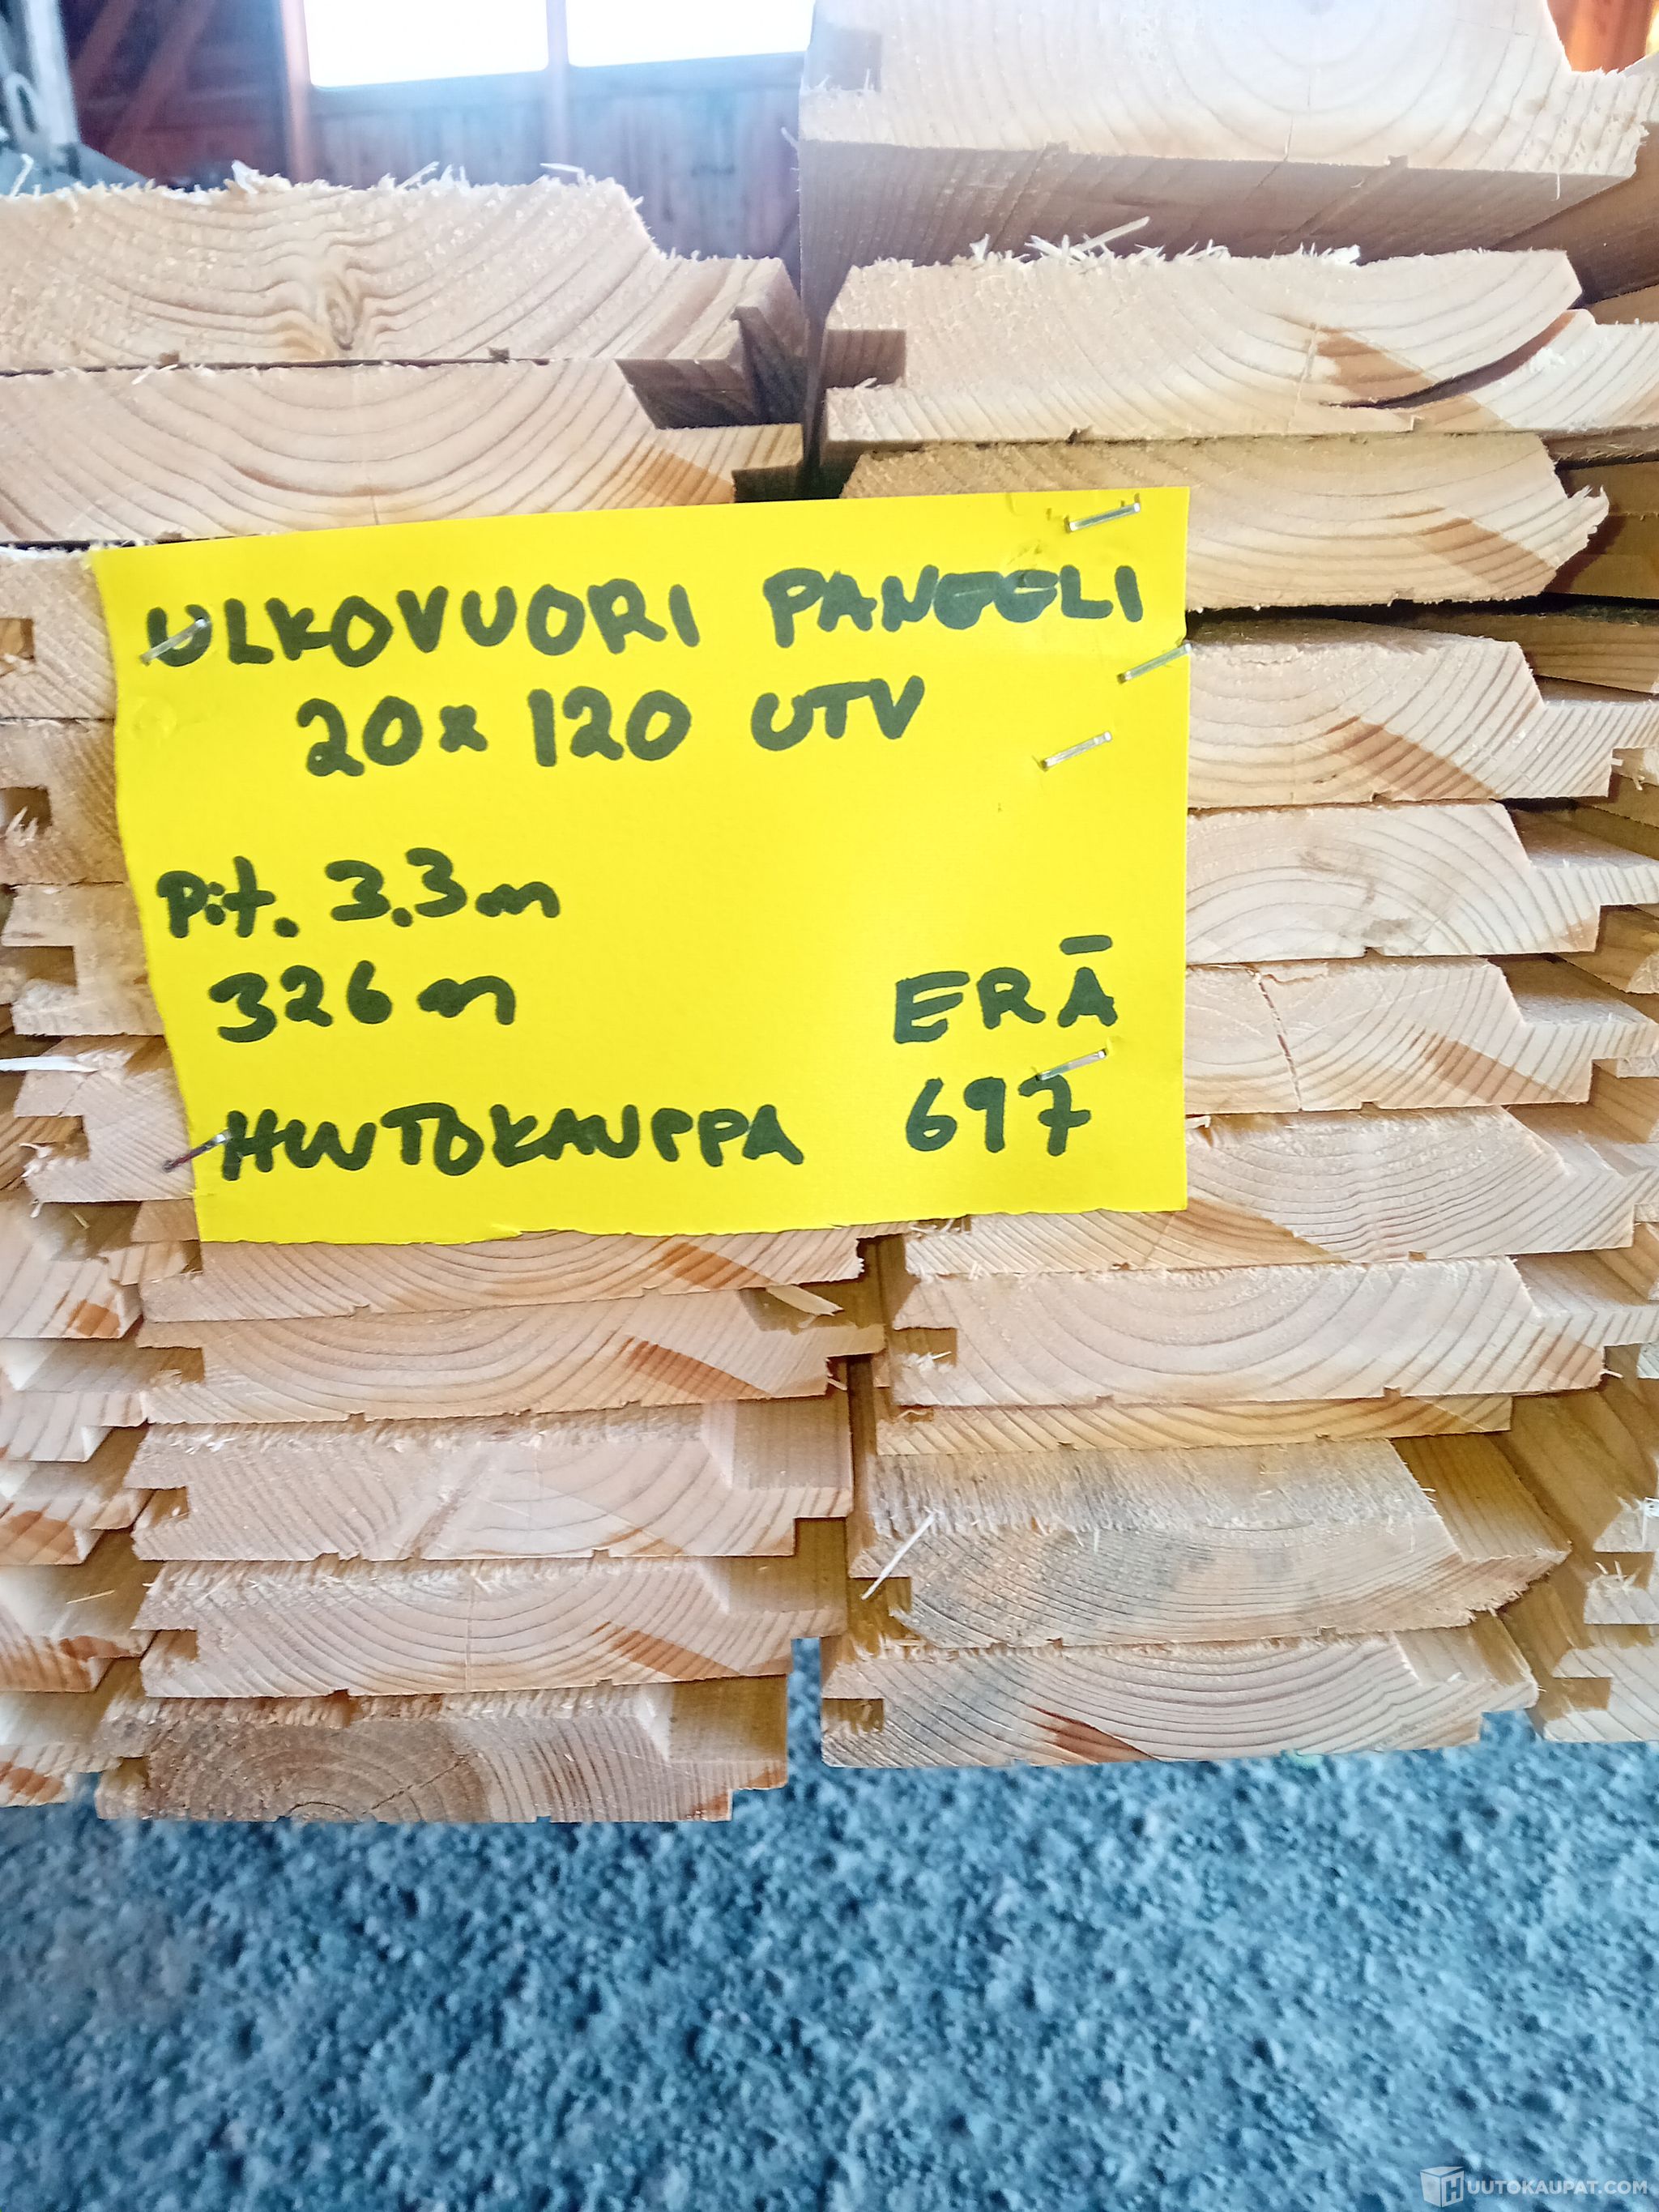 ULKOVUORI PANEELI
20x120 UTV
Pit. 3.3m
326m
ERÄ
HUUTOKAUPPA 697
HUUTOKAUPAT.COM